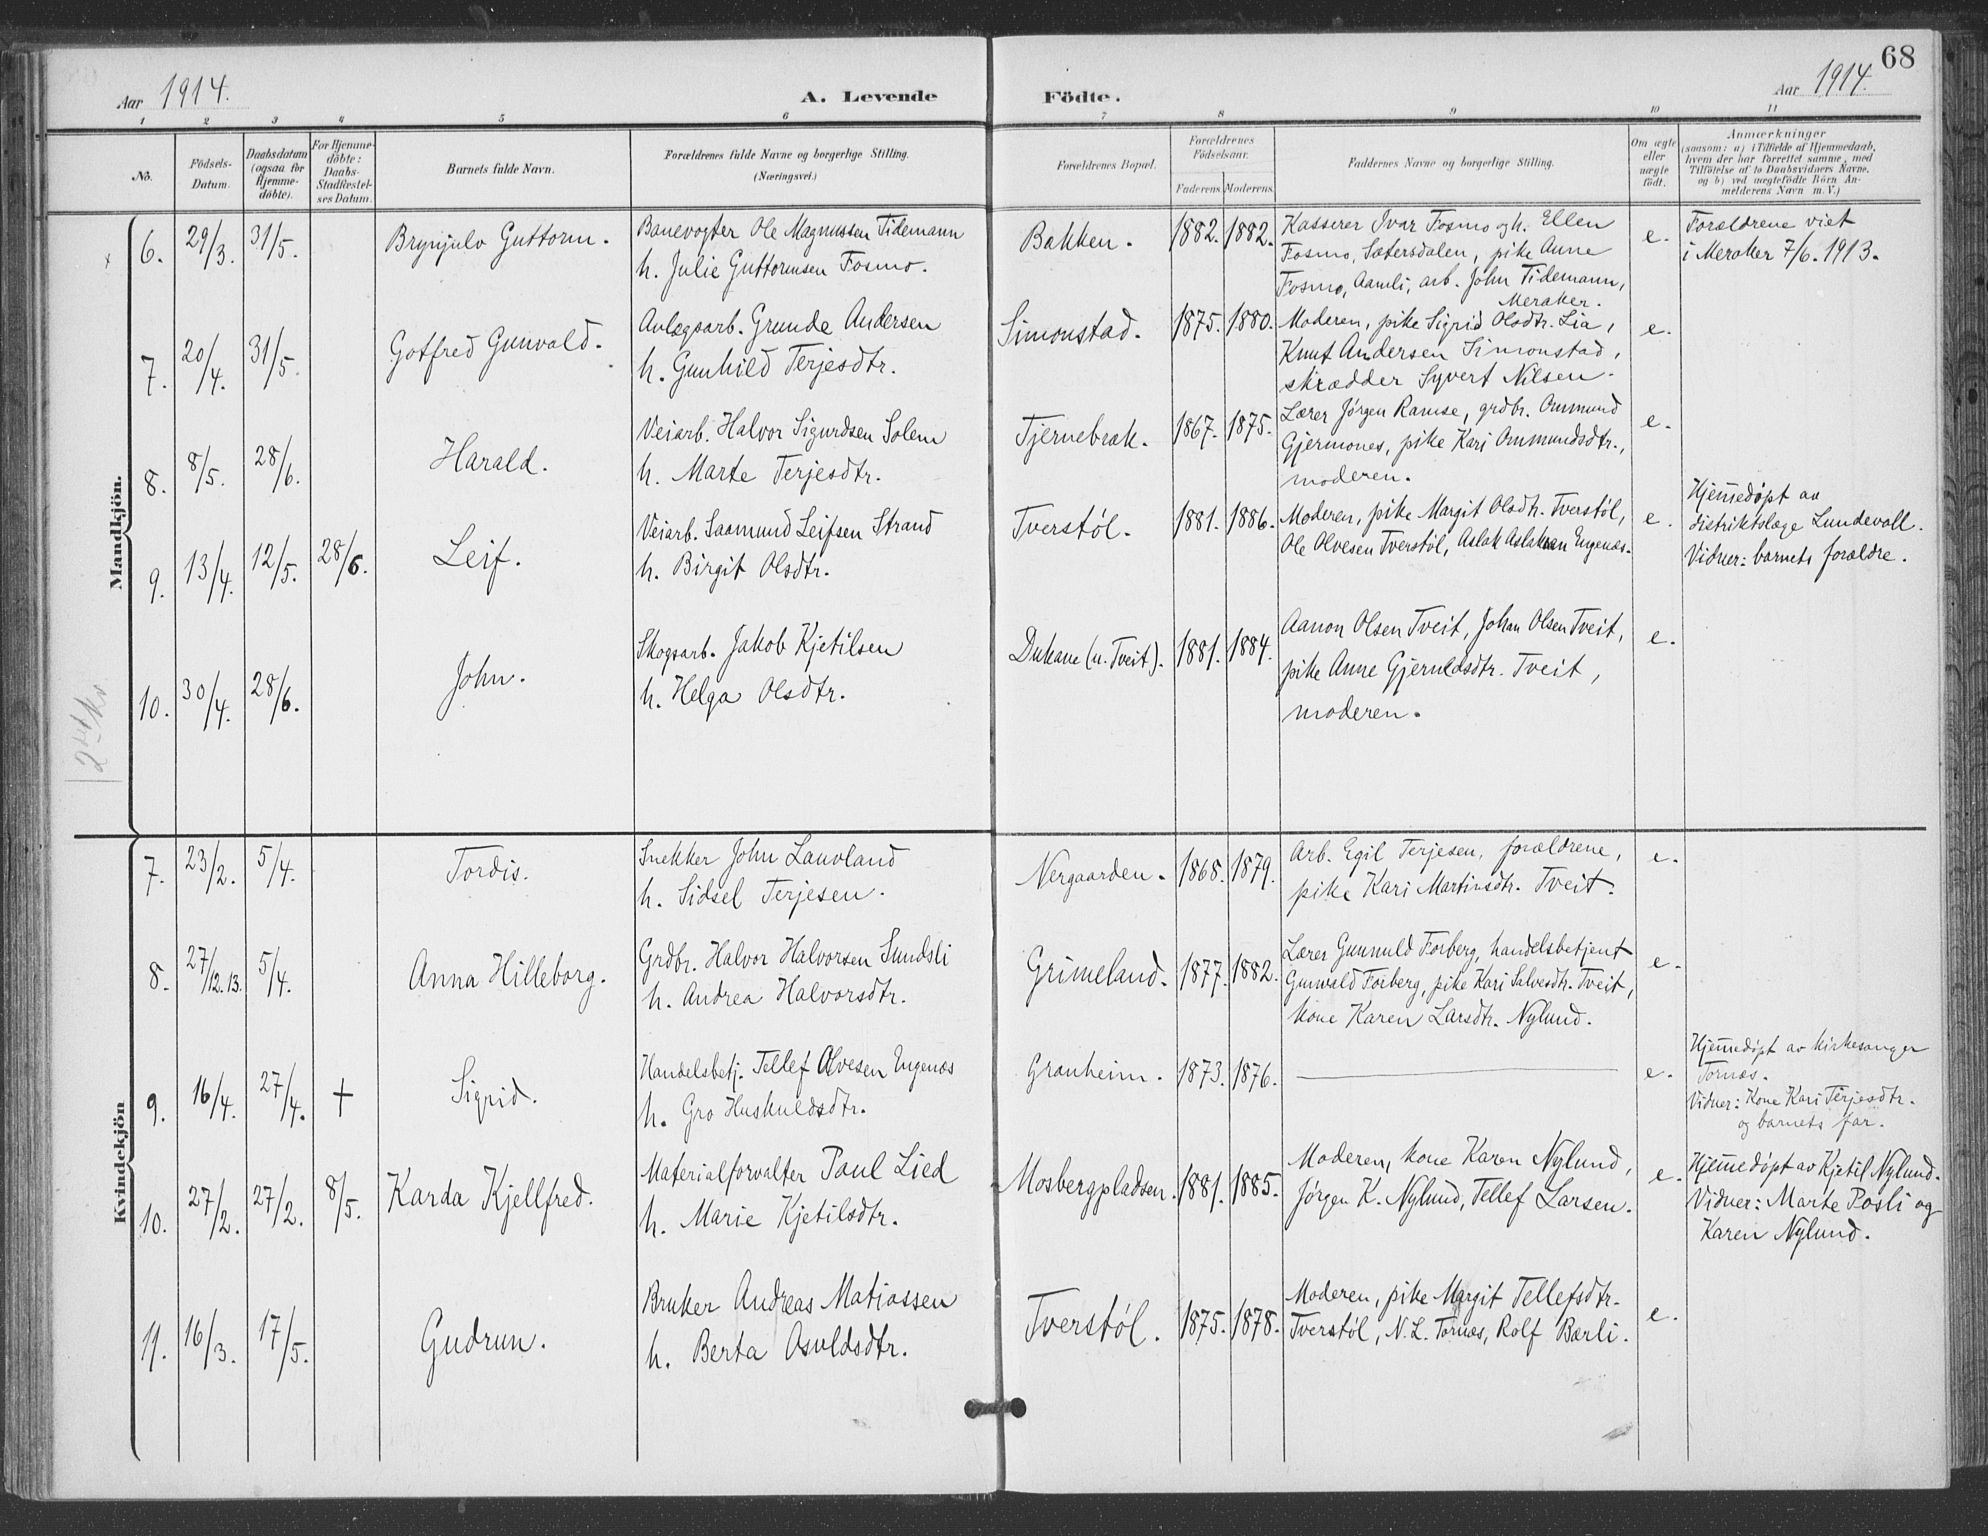 68
Aar 1914.
A. Levende Födte.
Aar 1914.
1 2 3 4 5 6 7 8 9 10 11
No.
Födsels-
Datum.
Daabsdatum
(ogsaa for
Hjemme-
döbte).
For Hjemme-
döbte:
Daabs-
Stadfæstel-
ses Datum.
Barnets fulde Navn.
Forældrenes fulde Navne og borgerlige Stilling.
(Næringsvei.)
Forældrenes Bopæl.
Forældrenes
Födselsaar.
Faderens. Moderens.
Faddernes Navne og borgerlige Stilling.
Om ægte
eller
uægte
födt.
Anmærkninger
(saasom: a) i Tilfælde af Hjemmedaab,
hvem der har forrettet samme, med
Tilföielse af to Daabsvidners Navne,
og b) ved uægtefödte Börn An-
melderens Navn m. V.)
Mandkjön.
6. 29/3. 31/5. Brynjulv Guttorm.
Banevogter Ole Magnussen Tidemann
h. Julie Guttormsen Fosmo.
Bakken. 1882. 1882.
Kasserer Ivar Fosmo og h. Ellen
Fosmo, Sætersdalen, pike Anne
Fosmo, Aamli, arb. John Tidemann,
Meraker.
e.
Forældrene viet
i Meraker 7/6. 1913.
7. 20/4. 31/5. Gotfred Gunvald.
Anlægsarb. Grunde Andersen
h. Gunhild Terjesdtr.
Simonstad. 1875. 1880.
Moderen, pike Sigrid Olsdtr. Lia,
Knut Andersen Simonstad,
skrædder Syvert Nilsen.
e.
8. 8/5. 28/6. Harald.
Veiarb. Halvor Sigurdsen Solem
h. Marte Terjesdtr.
Tjernebrak. 1867. 1875.
Lærer Jørgen Ramse, grdbr. Ommund
Gjermones, pike Kari Ommundsdtr.,
moderen.
e.
9. 13/4. 12/5. 28/6. Leif.
Veiarb. Saamund Leifsen Strand
h. Birgit Olsdtr.
Tverstöl. 1881. 1886.
Moderen, pike Margit Olsdtr. Tverstöl,
Ole Olvesen Tverstöl, Aslak Aslaksen Engenæs.
e.
Hjemmedøpt av
distriktslæge Lundevall.
Vidner: barnets forældre.
10. 30/4. 28/6. John.
Skogsarb. Jakob Kjetilsen
h. Helga Olsdtr.
Dukane (u. Tveit). 1881. 1884.
Aanon Olsen Tveit, Johan Olsen Tveit,
pike Anne Gjeruldsdtr. Tveit,
moderen.
e.
2det Kv.
Kvindekjön
7. 23/2. 5/4. Tordis.
Snekker John Lauvland
h. Sidsel Terjesen.
Nergaarden. 1868. 1879.
Arb. Egil Terjesen, forældrene,
pike Kari Martinsdtr. Tveit.
e.
8. 27/12.13. 5/4. Anna Hilleborg.
Grdbr. Halvor Halvorsen Sundsli
h. Andrea Halvorsdtr.
Grimeland. 1877. 1882.
Lærer Gunnuld Forberg, handelsbetjent
Gunvald Forberg, pike Kari Salvesdtr. Tveit,
kone Karen Larsdtr. Nylund.
e.
9. 16/4. 27/4. + Sigrid.
Handelsbetj. Tellef Olvesen Engenæs
h. Gro Huskuldsdtr.
Granheim. 1873. 1876.
e.
Hjemmedøpt av kirkesanger
Tornæs.
Vidner: Kone Kari Terjesdtr.
og barnets far.
10. 27/2. 27/2. 8/5. Karda Kjellfred.
Materialforvalter Paul Lied
h. Marie Kjetilsdtr.
Mosbergpladsen. 1881. 1885.
Moderen, kone Karen Nylund,
Jörgen K. Nylund, Tellef Larsen.
e.
Hjemmedøpt av Kjetil Nylund.
Vidner: Marte Posli og
Karen Nylund.
11. 16/3. 17/5. Gudrun.
Bruker Andreas Matiassen
h. Berta Osuldsdtr.
Tverstöl. 1875. 1878.
Moderen, pike Margit Tellefsdtr.
Tverstöl, N. L. Tornæs, Rolf Bærli.
e.